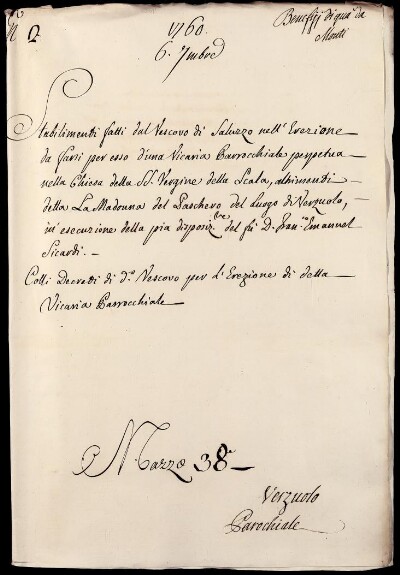 N 2
1760.
6. 7mbre
Beneffizj di qua da
Monti
Stabilimenti fatti dal Vescovo di Saluzzo nell' Erezione
da farsi per esso d'una Vicaria Parrocchiale perpetua
nella Chiesa della SS. Vergine della Scala, altrimandi
detta La Madonna del Paschero del Luogo di Verzuolo,
in' esecuzione della pia disposiz.ne del fu D. Fran.co Emanuel
Sicardi. -
Colli Decreti di d.o Vescovo per l'Erezione di detta
Vicaria Parrocchiale
Mazzo 38.o
Verzuolo
Parochiale